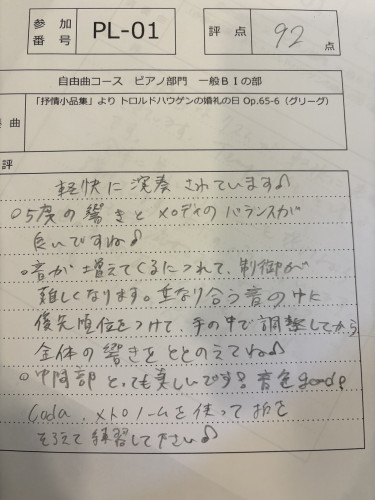 参加番号 PL-01 評点 92点
自由曲コース ピアノ部門 一般BⅠの部
曲 「抒情小品集」より トロルドハウゲンの婚礼の日 Op.65-6（グリーグ）
評
軽快に演奏されています♪
○5度の響きとメロディのバランスが
良いですね♪
○音が増えてくるにつれて、制御が
難しくなります。重なり合う音の中に
優先順位をつけて、手の中で調整してから
全体の響きをととのえてね♪
○中間部とっても美しいです！音色good♪
Coda、メトロノームを使って拍を
そろえて練習してください♪